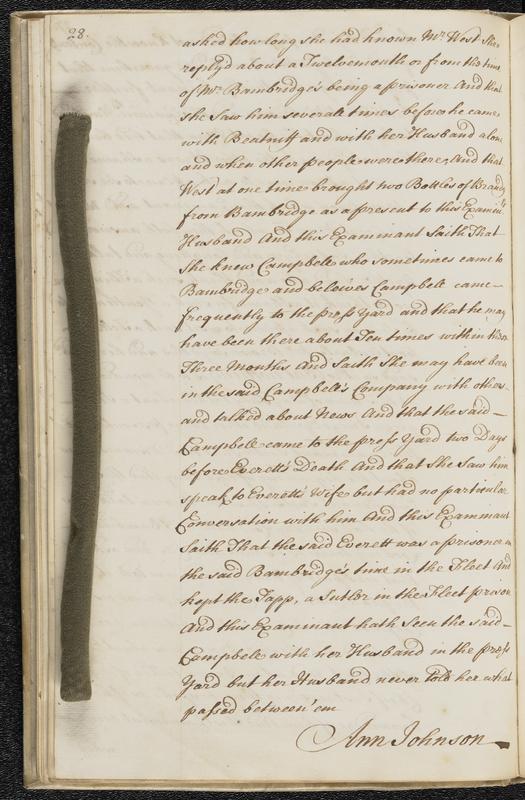 28.
asked how long she had known Mr. West She
reply'd about a Twelvemonth or from the time
of Mr. Bambridge's being a prisoner And that
she Saw him severall times before he came
with Beatniff and with her Husband alone
and when other people were there, And that
West at one time brought two Bottles of Brandy
from Bambridge as a present to this Examin.ts
Husband And this Examinant Saith That
She knew Campbell who sometimes came to
Bambridge and beleives Campbell came
frequently to the press Yard and that he may
have been there about Ten times within these
Three Months And Saith She may have been
in the said Campbell's Company with others
and talked about News And that the said
Campbell came to the press Yard two Days
before Everett's Death And that She Saw him
speak to Everetts Wife but had no particular
Conversation with him And this Examinant
Saith That the said Everett was a prisoner in
the said Bambridge's time in the Fleet And
kept the Tapp, a Sutler in the Fleet prison
And this Examinant hath Seen the said
Campbell with her Husband in the press
Yard but her Husband never told her what
passed between 'em
Ann Johnson